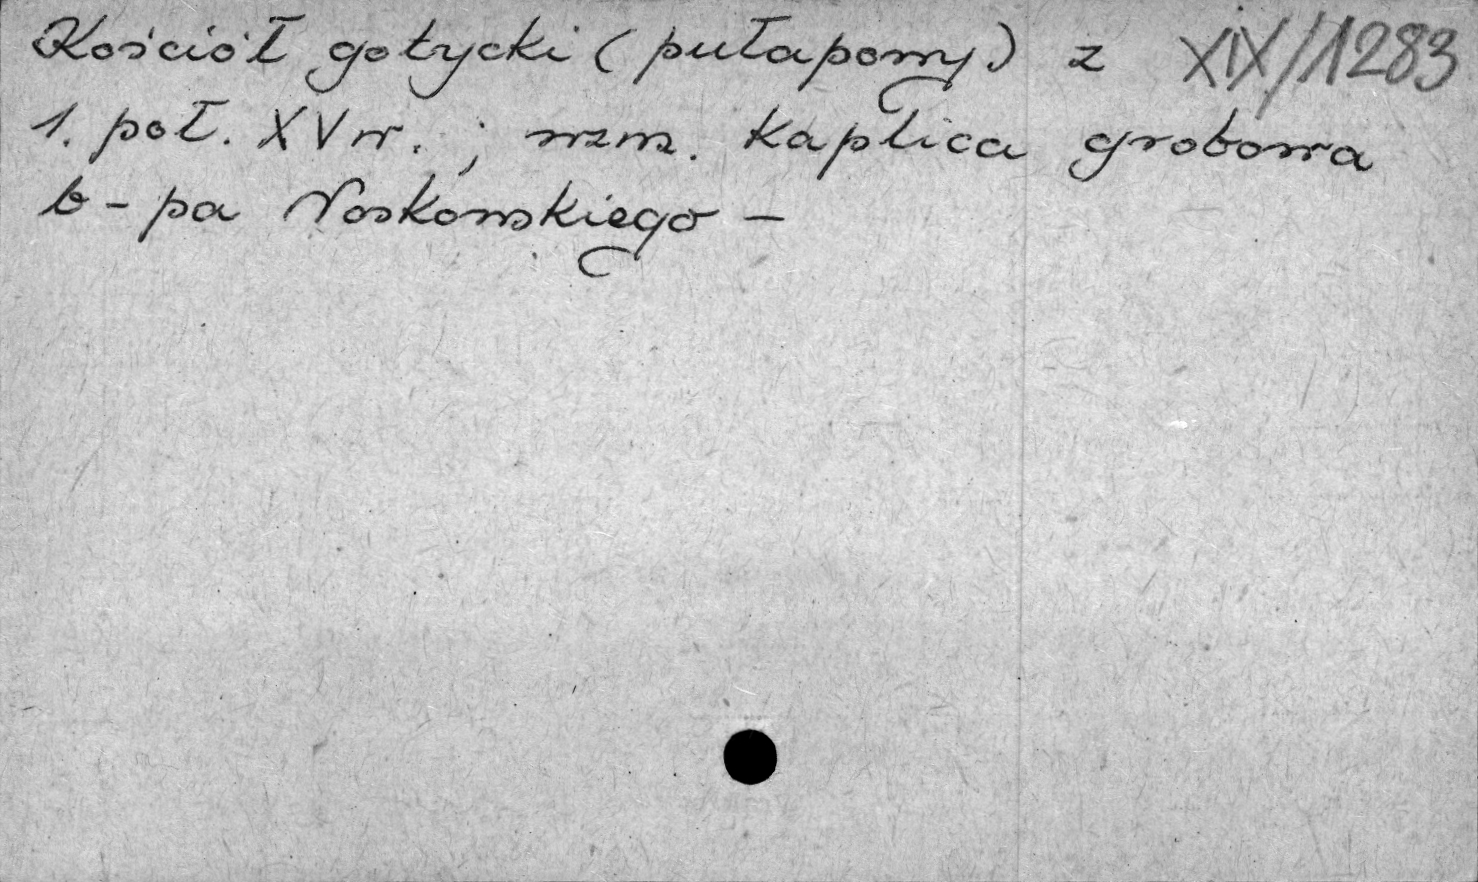 Kościół gotycki (pułapowy) z XIX/1283
1. poł. XV w.; wzm. kaplica grobowa
b-pa Noskowskiego –